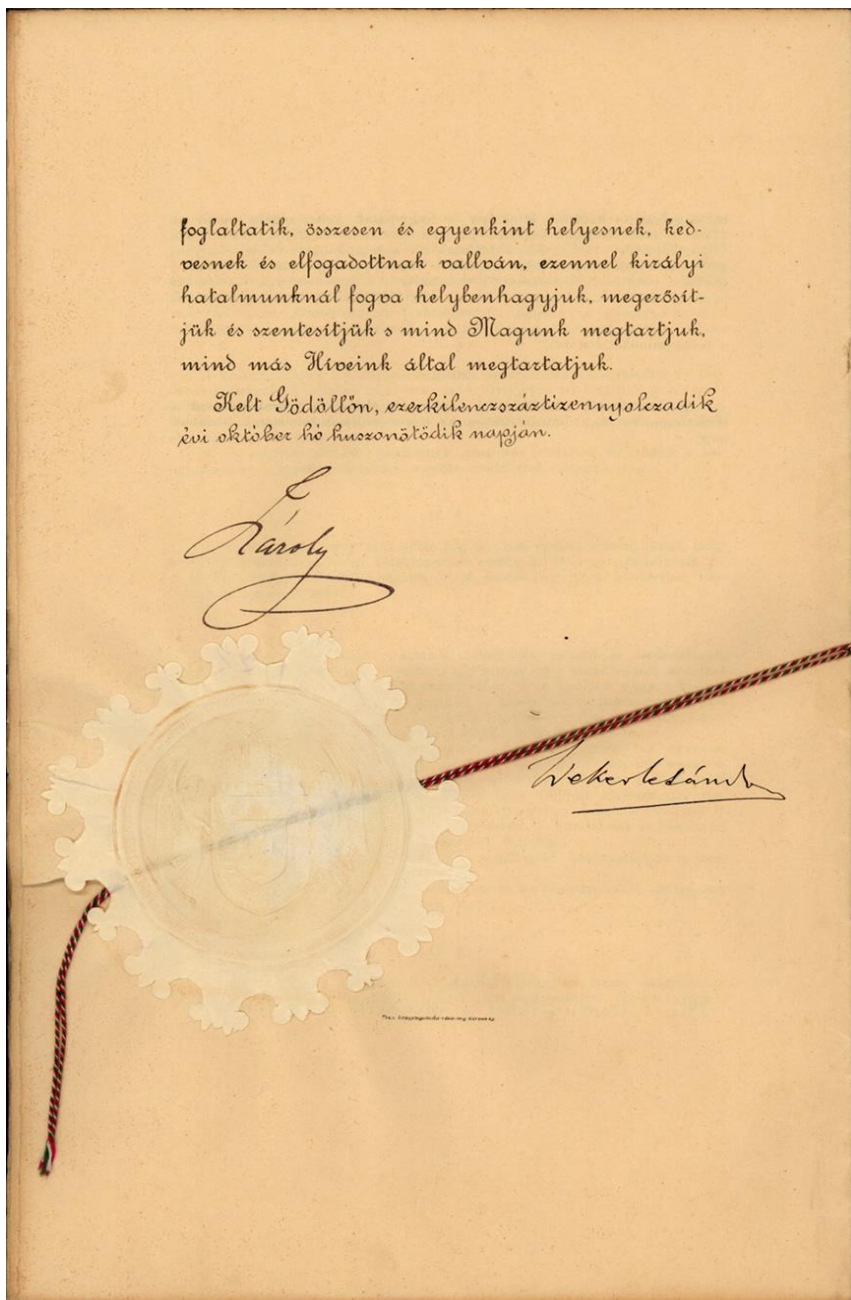 foglaltatik, összesen és egyenkint helyesnek, ked-
vesnek és elfogadottnak vallván, ezennel királyi
hatalmunknál fogva helybenhagyjuk, megerősít-
jük és szentesítjük s mind Magunk megtartjuk,
mind más Híveink által megtartatjuk.
Kelt Gödöllőn, ezerkilenczszáztizennyolczadik
évi október hó huszonötödik napján.
Károly
Wekerle Sándor